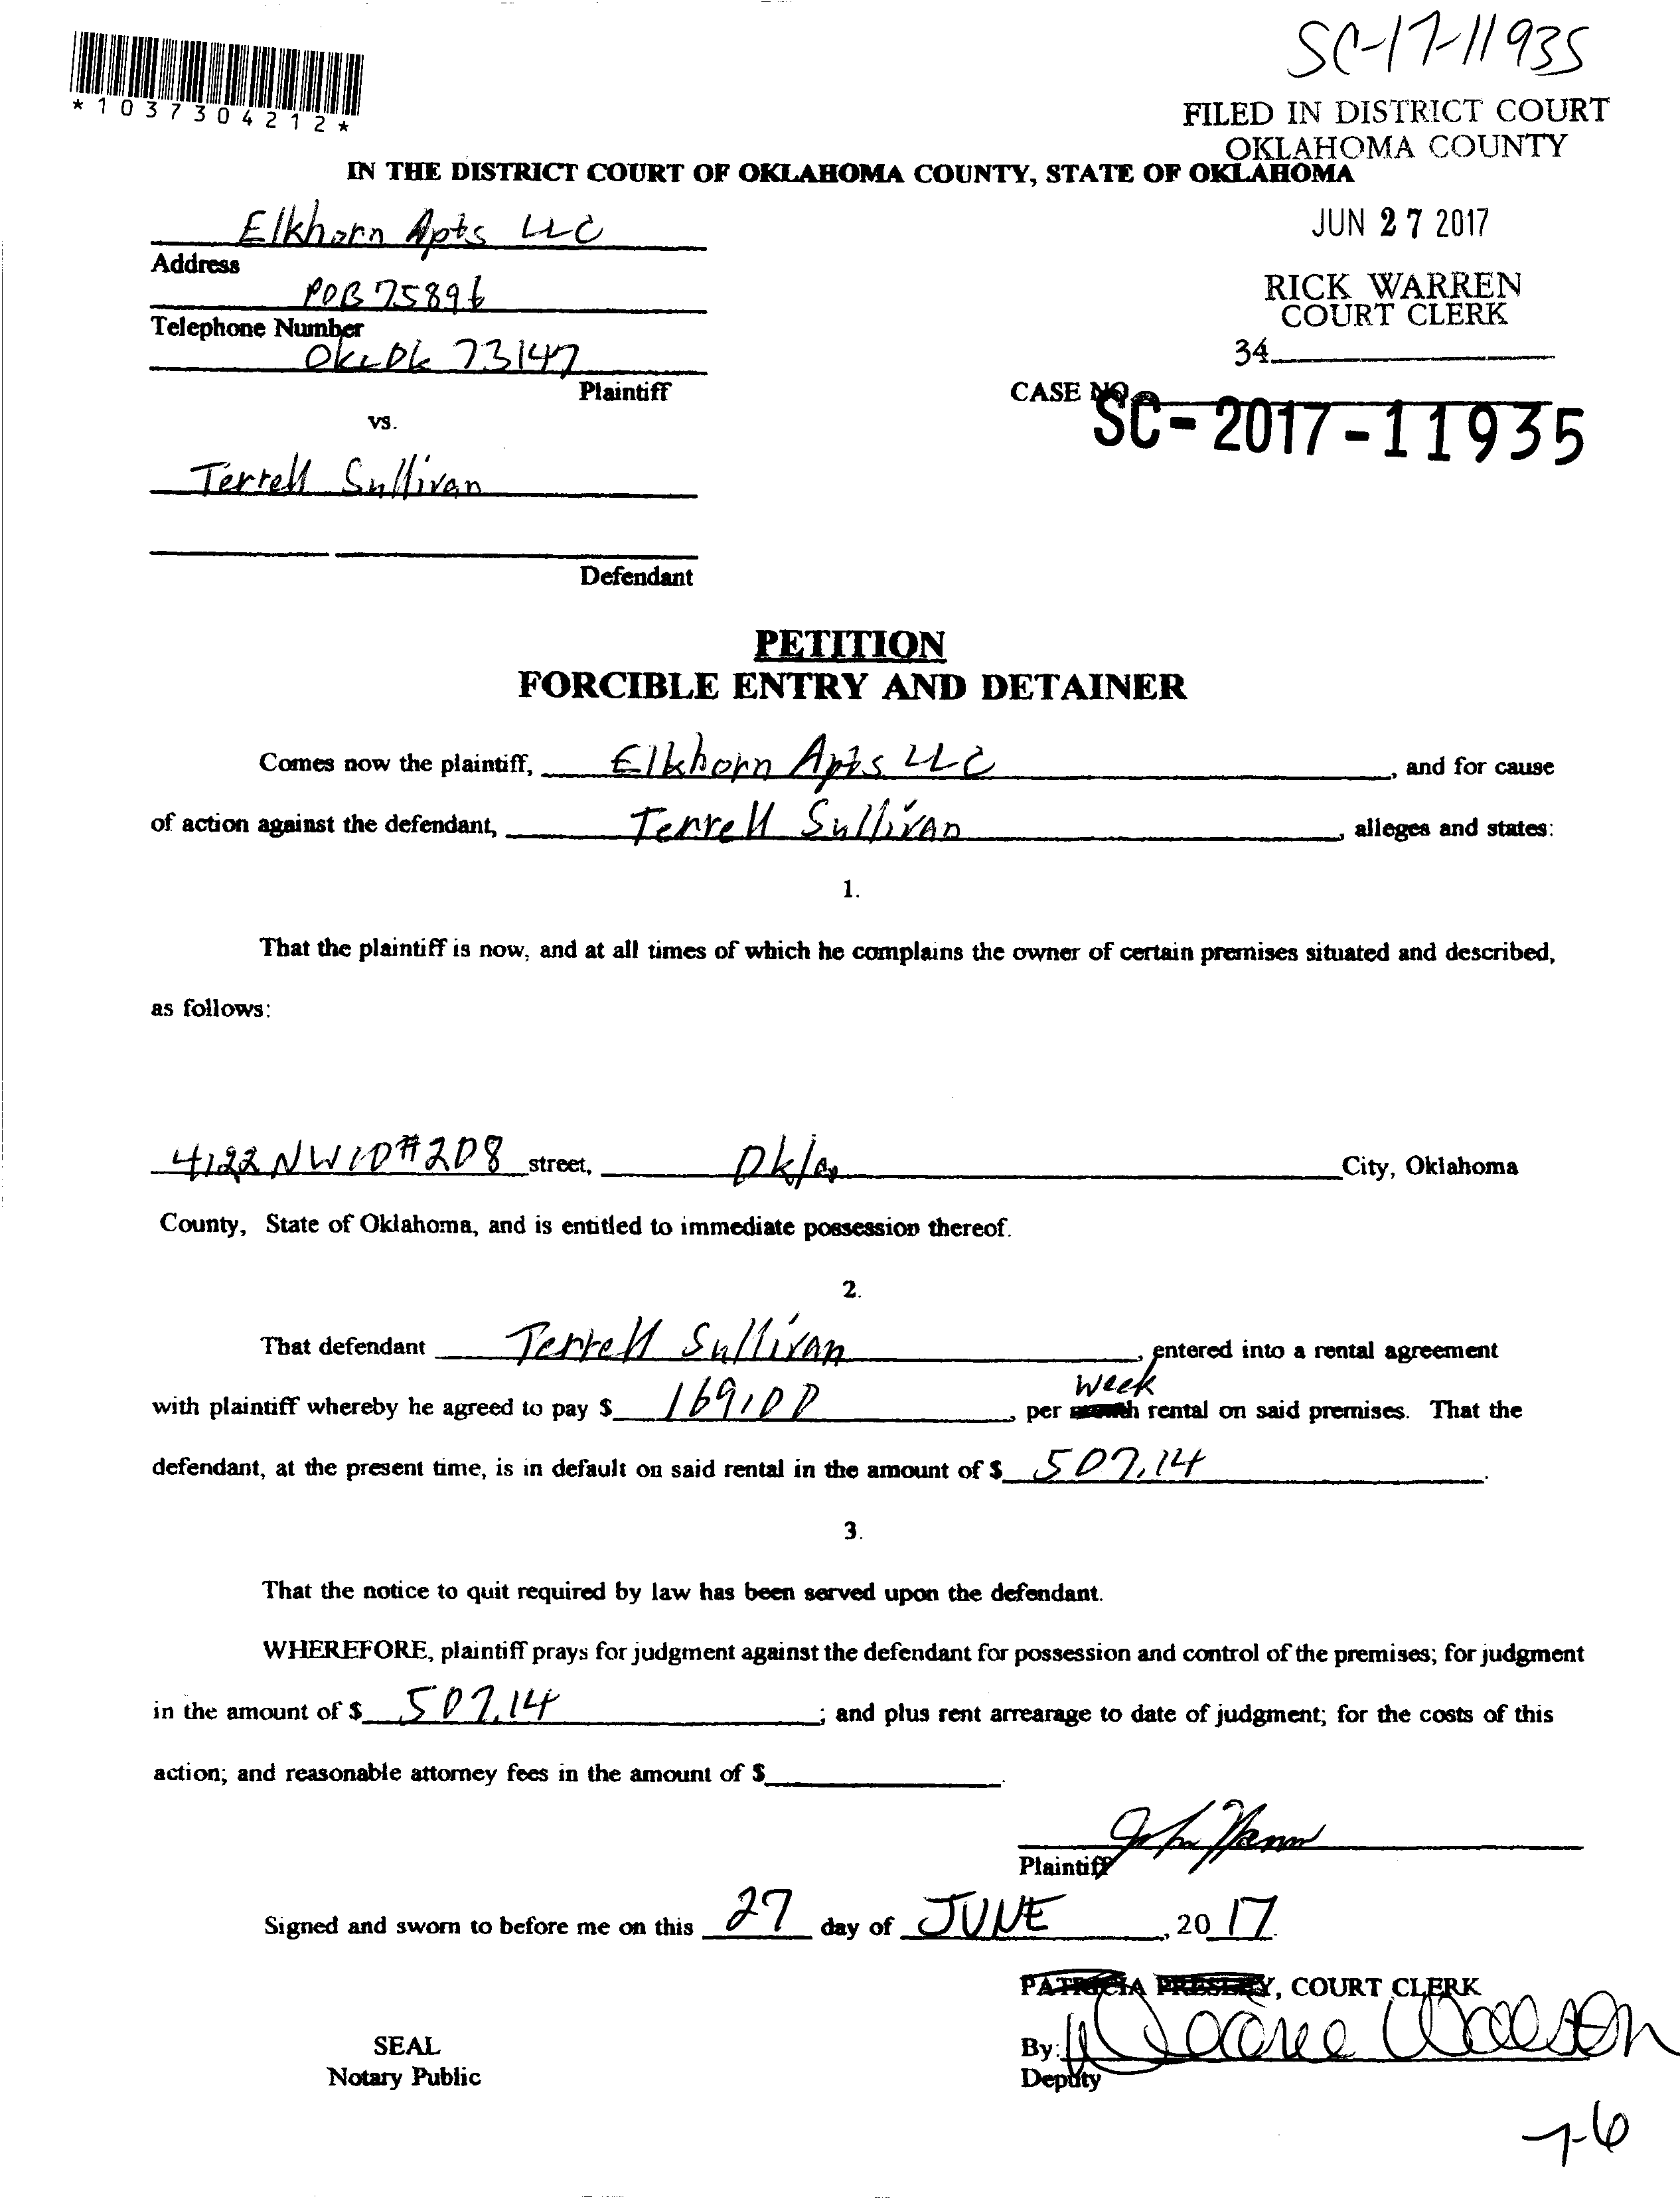 SC-17-11935
*1037304212*
FILED IN DISTRICT COURT
OKLAHOMA COUNTY
IN THE DISTRICT COURT OF OKLAHOMA COUNTY, STATE OF OKLAHOMA
Elkhorn Apts LLC
JUN 27 2017
Address
POB 75896
RICK WARREN
COURT CLERK
Telephone Number
OKC Ok 73147
34
Plaintiff
CASE NO.
SC-2017-11935
vs.
Terrell Sullivan
Defendant
PETITION
FORCIBLE ENTRY AND DETAINER
Comes now the plaintiff, Elkhorn Apts LLC, and for cause
of action against the defendant, Terrell Sullivan, alleges and states:
1.
That the plaintiff is now, and at all times of which he complains the owner of certain premises situated and described,
as follows:
4122 NW 10 #208 street, Okla City, Oklahoma
County, State of Oklahoma, and is entitled to immediate possession thereof.
2.
That defendant Terrell Sullivan, entered into a rental agreement
week
with plaintiff whereby he agreed to pay $ 169.00, per month rental on said premises. That the
defendant, at the present time, is in default on said rental in the amount of $ 507.14.
3.
That the notice to quit required by law has been served upon the defendant.
WHEREFORE, plaintiff prays for judgment against the defendant for possession and control of the premises; for judgment
in the amount of $ 507.14; and plus rent arrearage to date of judgment; for the costs of this
action; and reasonable attorney fees in the amount of $.
John
Plaintiff
Signed and sworn to before me on this 27 day of JUNE, 2017.
PATRICIA PRESLEY, COURT CLERK
SEAL
By:
Notary Public
Deputy
7-6